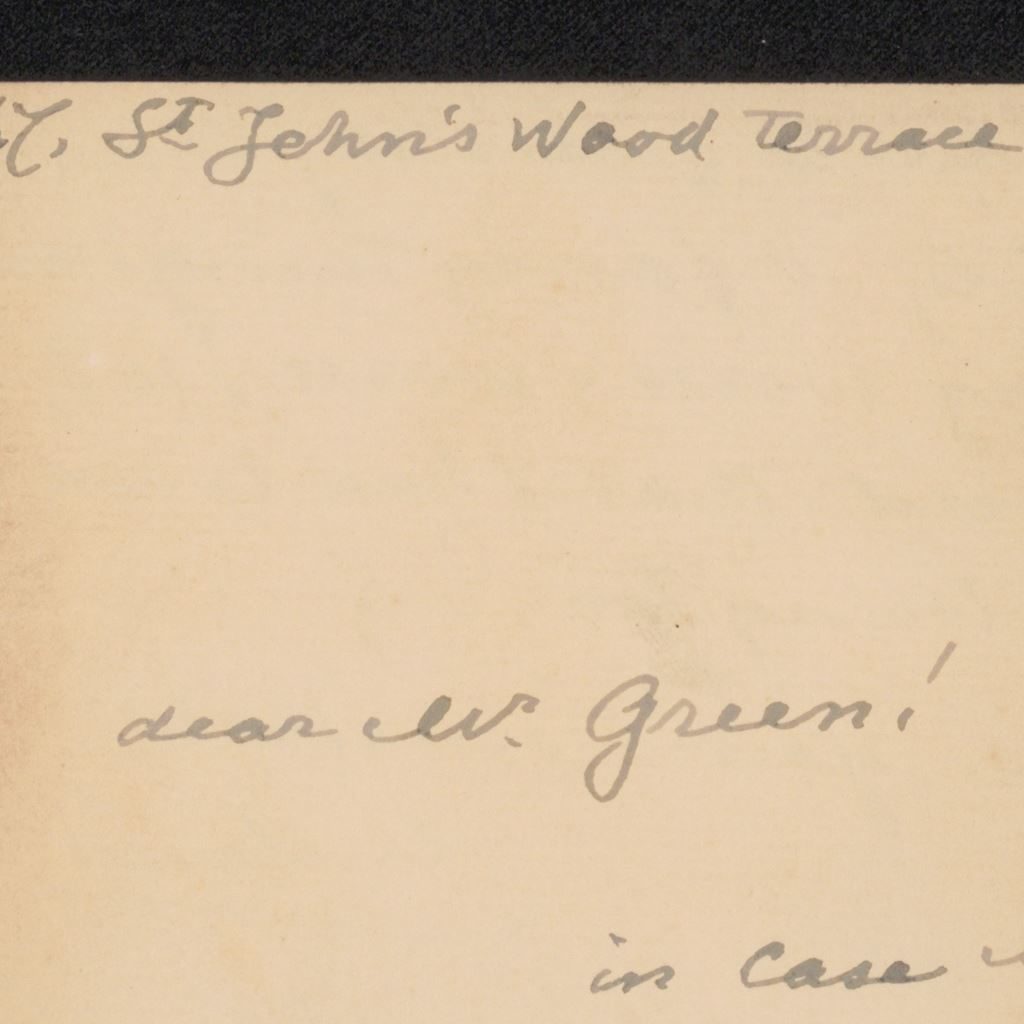 7, St John's Wood Terrace
dear Mr. Green!
in case